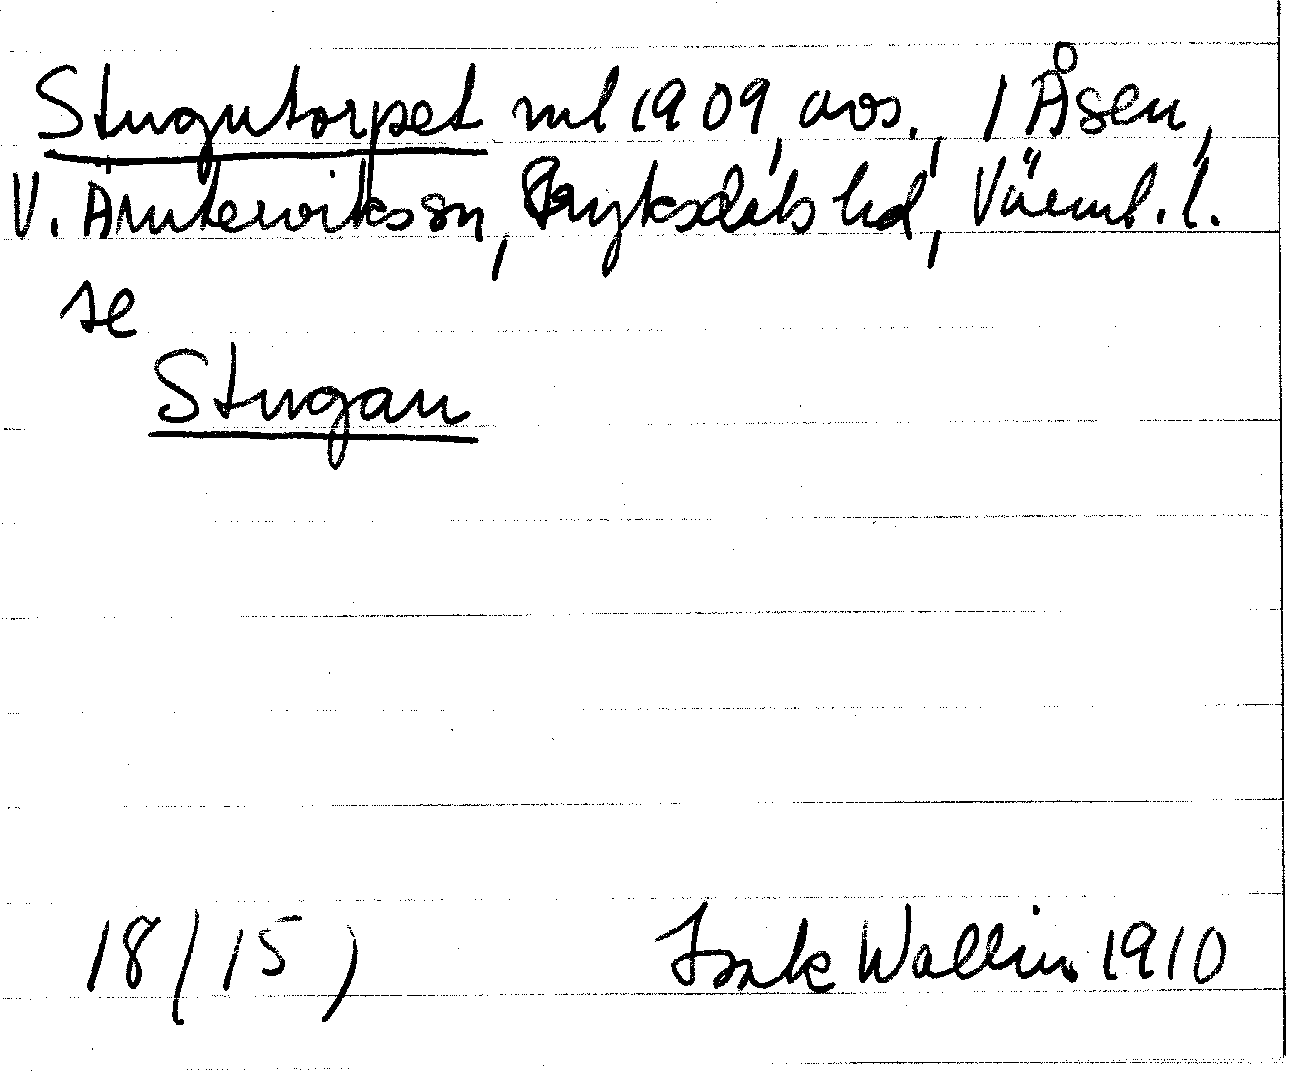 Stugutorpet ml 1909, avs., 1 Åsen,
V. Ämtervikssn, Fryksdals hd, Värml. l.
se
Stugan
18 (15) Isak Wallin 1910